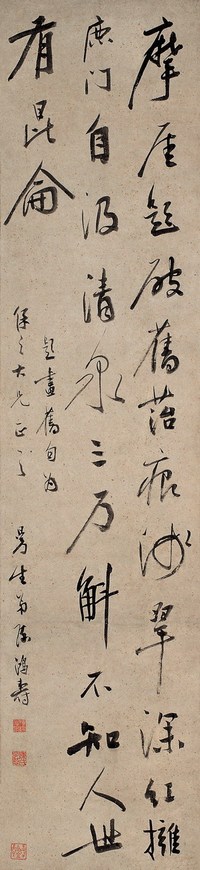 摩厓题破舊苔痕浓翠深红擁
鹿门自汲清泉三万斛不知人世
有昆侖
题畫舊句为
保之大兄正之
曼生弟陈鴻寿